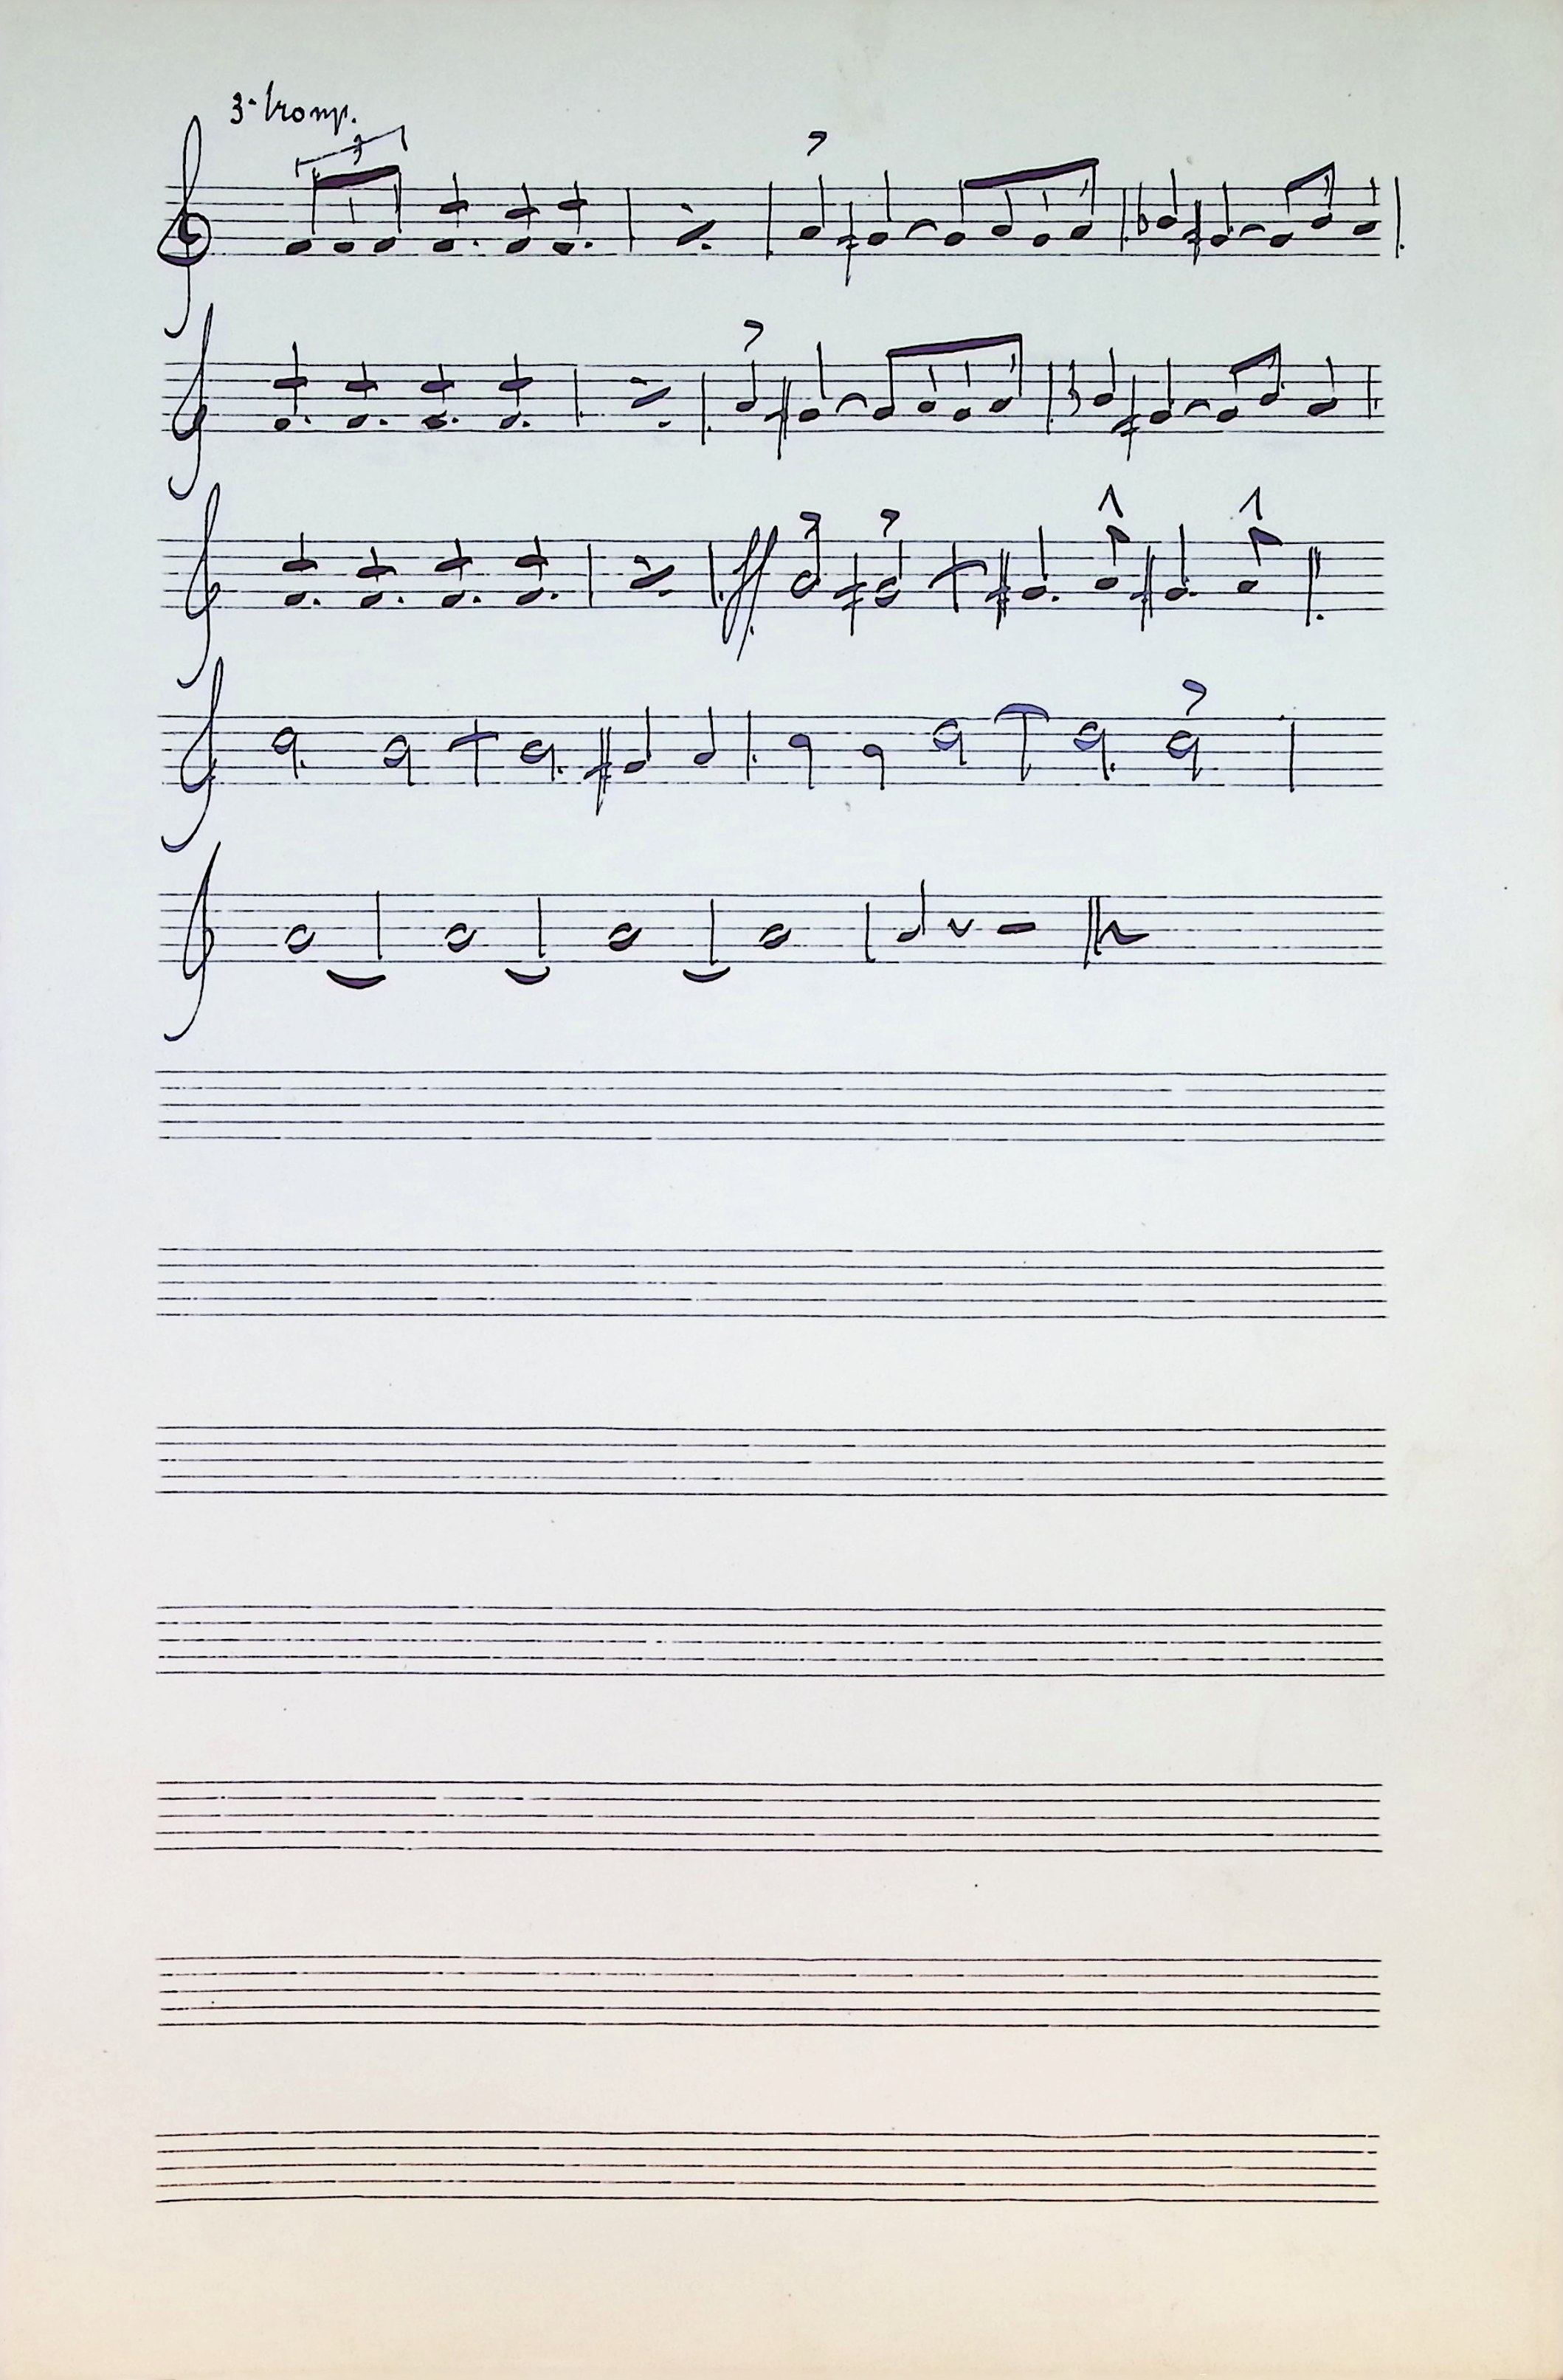 3ª tromp.
3
ff